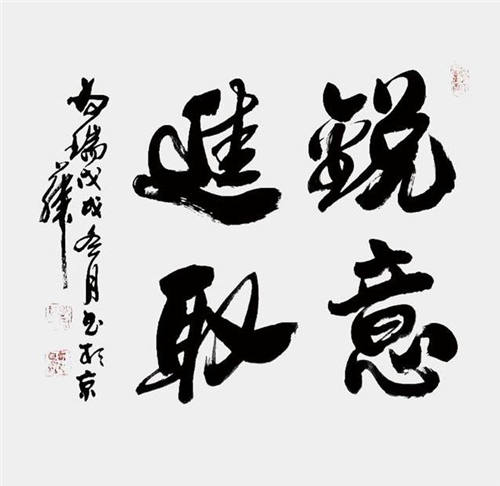 銳意
進取
瑞戊戌冬月书於京